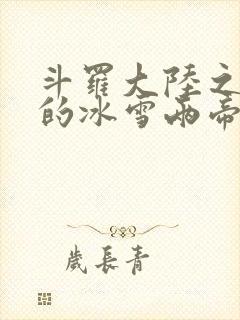 斗羅大陸之
的冰雪兩帝
歲長青